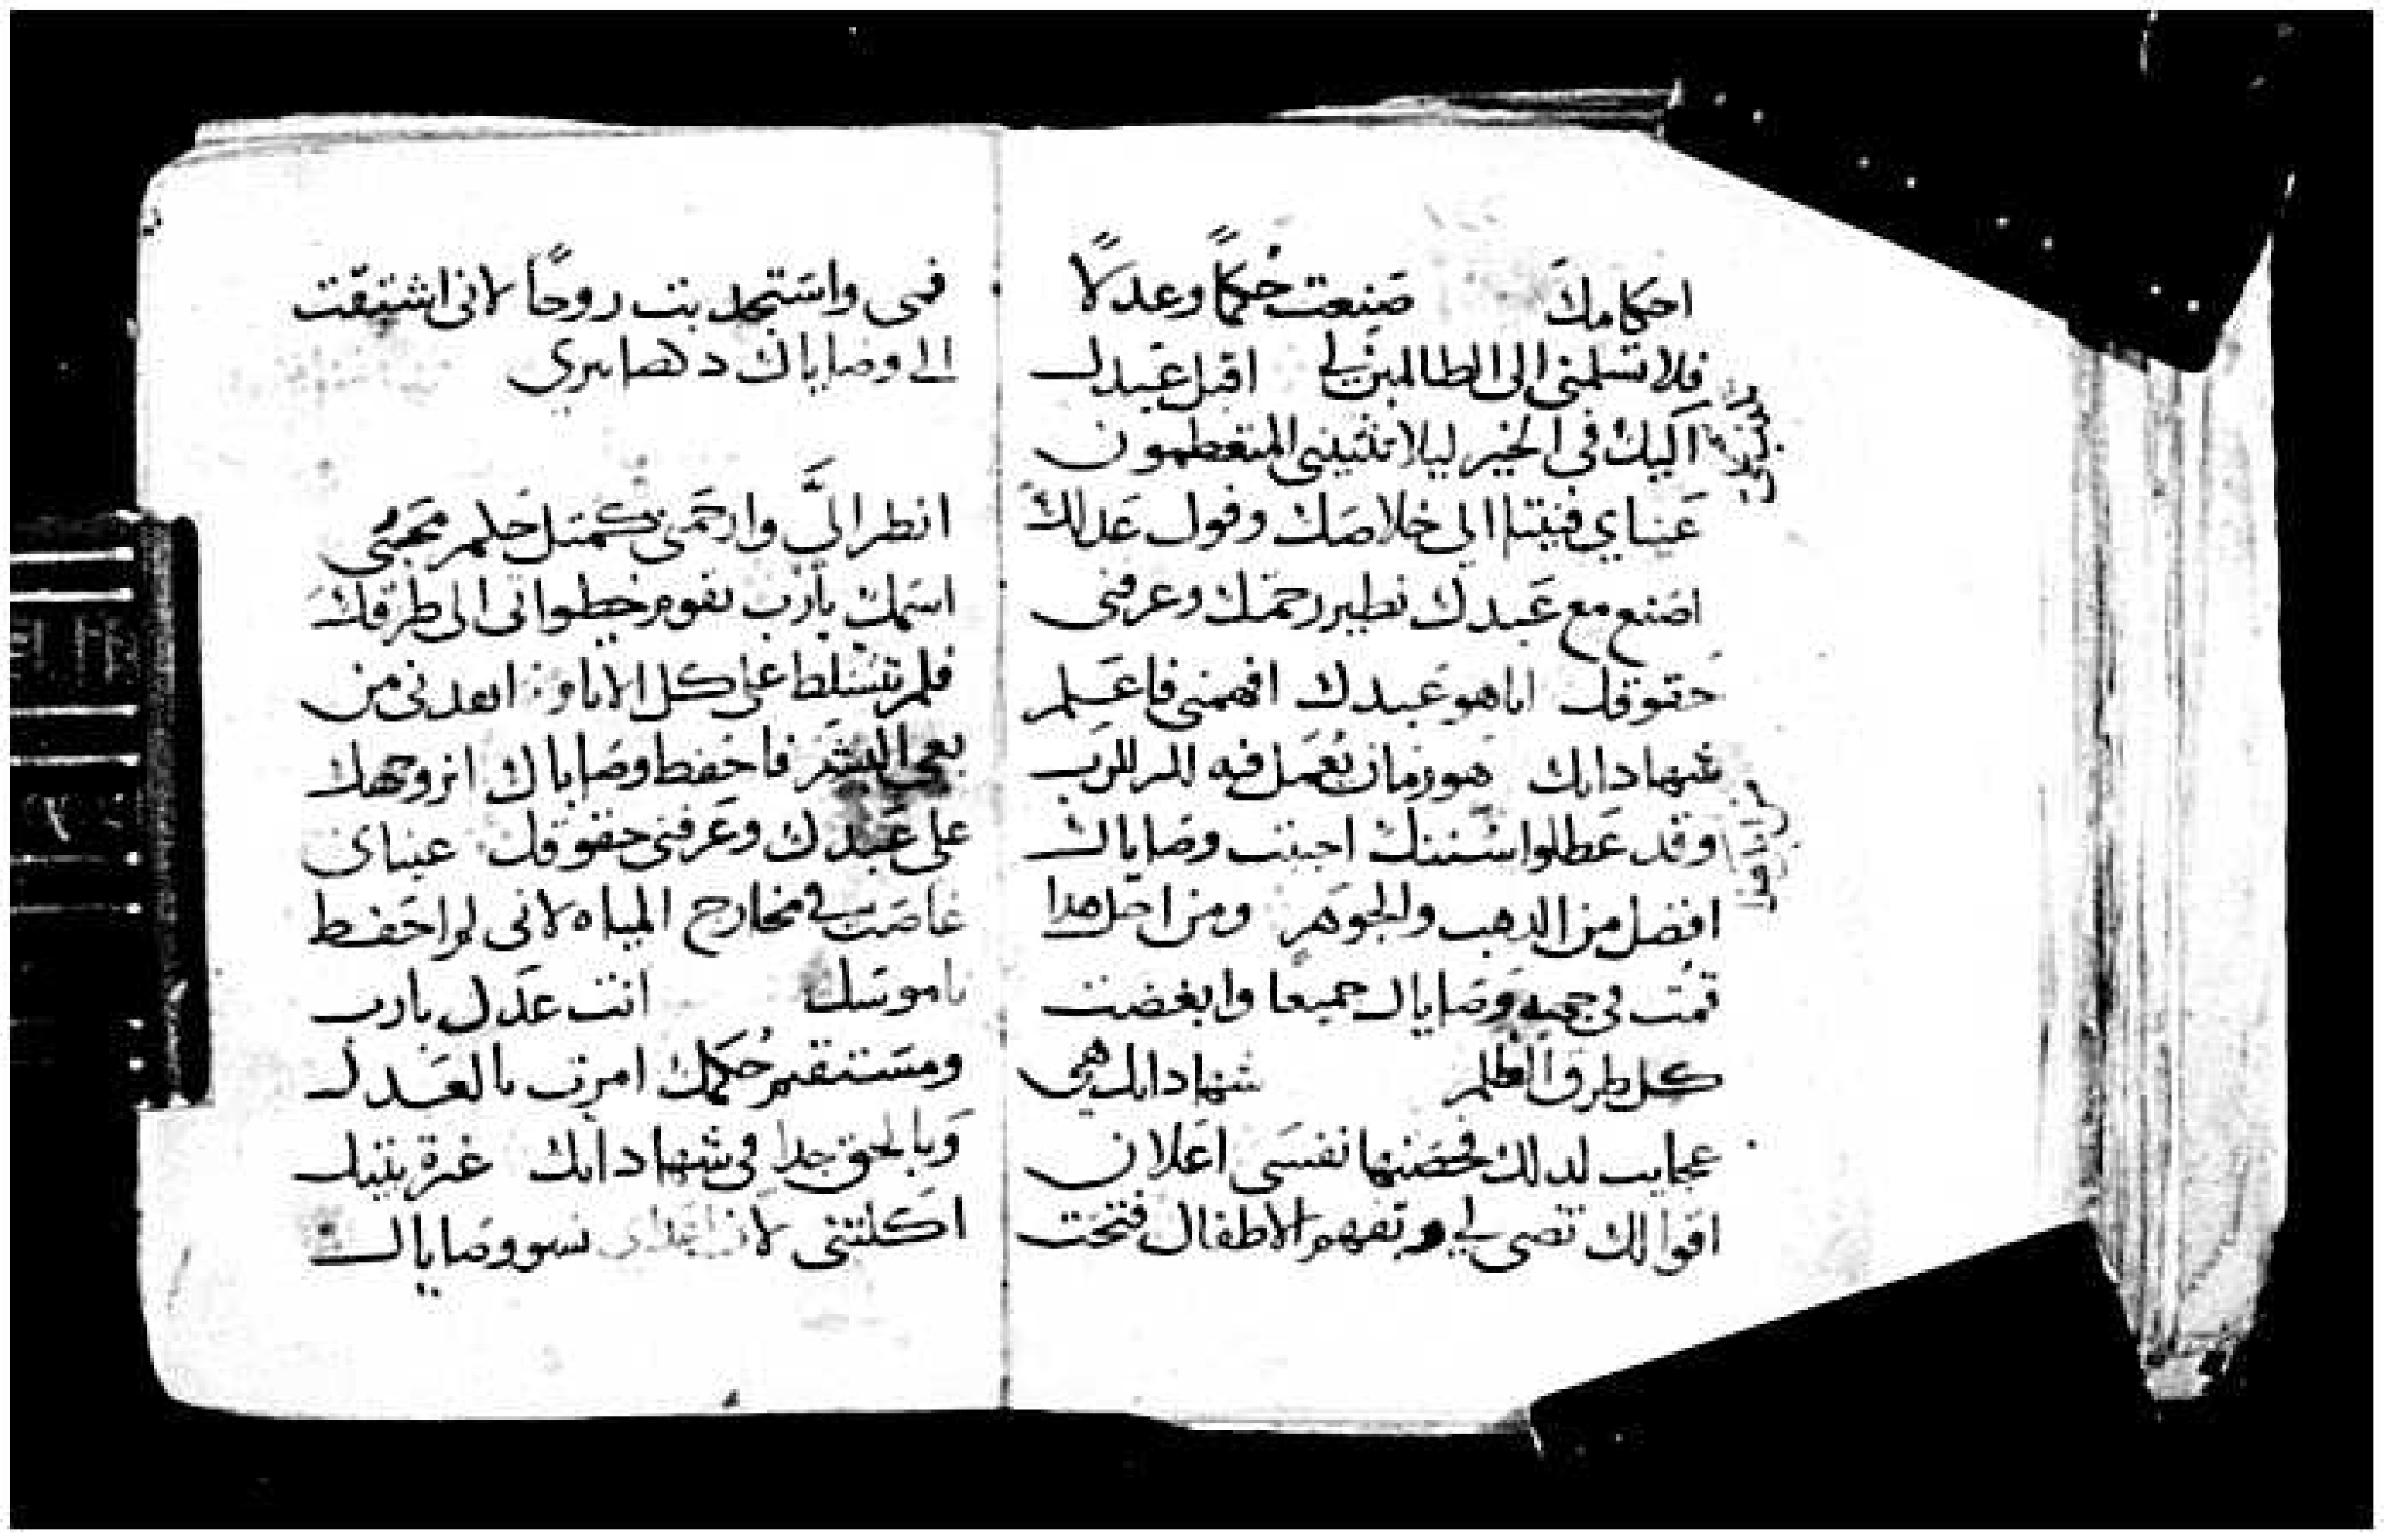 احكامك صنعت حُكمًا وعدلًا
فلا تسلمنى الى الطالمين لي اقبل عَبدك
اليك فى الخير ليلا تثنينى المتعطمون
عَيناي فنيتا الي خلاصَك وقول عَدلك
اصَنع مع عَبدك نطير رحمتك وعرفنى
حَقوقك انا هو عَبدك افهمنى فاعَلم
شهاداتك هو زمان يُعمَل فيه للرب
وقد عَطلوا سُننك احببت وصَاياك
افضل من الدهب والجوهَر ومن اجل هدا
قمُت فى جميع وصَاياك جميعا وابغضت
كل طرق الطلم شهاداتك هى
عجايب لدلك فحصَتها نفسَى اعَلان
اقوالك تضى لي وتفهم الاطفال فتحَت
فمى واسَتجدبت روحًا لانى اشتقت
الى وصاياك
انطر الىَّ وارحَمنى كمثل حَكم محبى
اسَمك يارب تقوم خطواتى الى طرقك
فلم تتسَلط على كل الاثام ابعدنى من
بغى البشَر فاحَفط وصَاياك انر وجهك
على عَبدك وعَرفنى حقوقك عيناى
غاصَت فى مخارج المياه لانى لم احَفط
ناموسَك انت عَدل يارب
ومسَتقيم حُكمك امرت بالعَدل
وَبالحق جدا فى شهاداتك غيرة بيتك
اكلتنى لان اعداى نسو وصَاياك